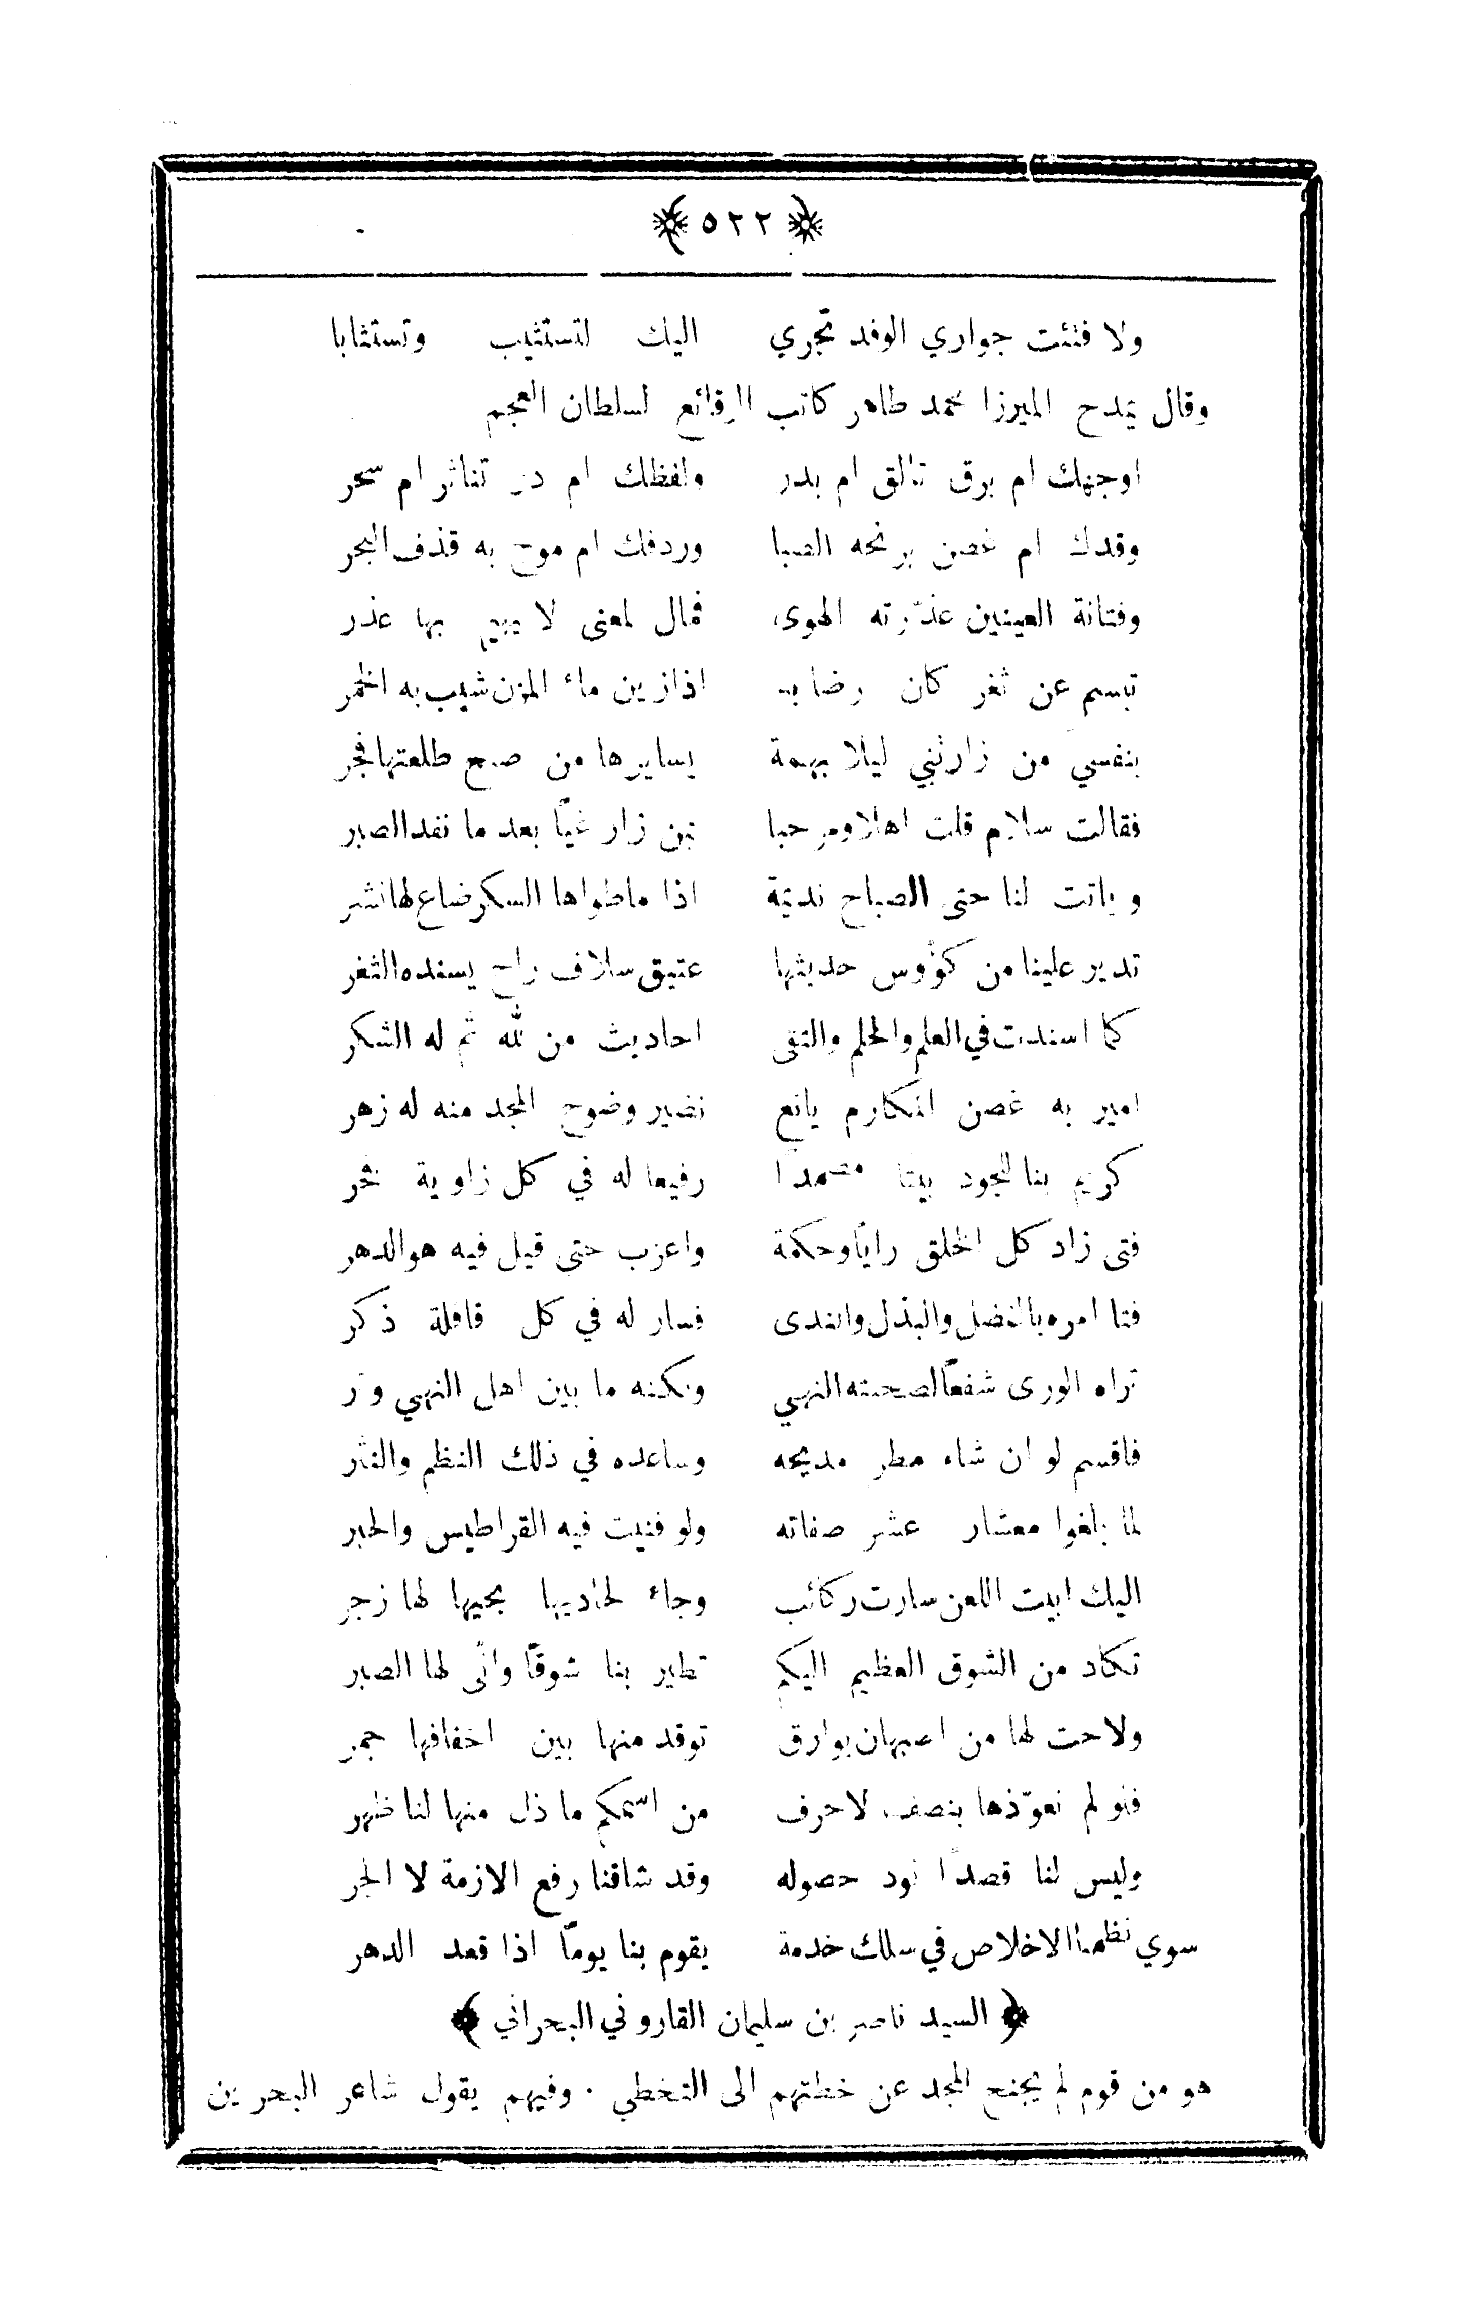 ﴿ ٥٢٢ ﴾
ولا فتئت جواري الوفد تجري اليك لتستثيب وتستثابا
وقال يمدح الميرزا محمد طاهر كاتب الرقائع لسلطان العجم
اوجهك ام برق تالق ام بدر ولفظك ام در تناثر ام سحر
وقدك ام غصن يرنحه الصبا وردفك ام موج به قذف البحر
وفتانة العينين عذرته الهوى فمال لمعنى لا يهيم بها عذر
تبسم عن ثغر كان رضابه اذا زين ماء المزن شيب به الخمر
بنفسي من زارتني ليلا بهمة يسايرها من صبح طلعتها فجر
فقالت سلام قلت اهلا ومرحبا بمن زار غبّا بعد ما نفد الصبر
وباتت لنا حتى الصباح نديمة اذا ما طواها السكر ضاع لها نشر
تدير علينا من كؤوس حديثها عتيق سلاف راح يسنده الثغر
كما اسندت في العلم والحلم والتقى احاديث من لله ثم له الشكر
امير به غصن المكارم يانع نضير وضوح المجد منه له زهر
كريم بنا للجود بيتا مصمدًا رفيعا له في كل زاوية فخر
فتى زاد كل الخلق رايًا وحكمة واعزب حتى قيل فيه هو الدهر
فتا امره بالفضل والبذل والندى فسار له في كل قافلة ذكر
تراه الورى شفعًا لصحبته النهي ولكنه ما بين اهل النهي وتر
فاقسم لو ان شاء مديحه وساعده في ذلك النظم والنثر
لما بلغوا معشار عشر صفاته ولو فنيت فيه القراطيس والحبر
اليك ابيت اللعن سارت ركائب وجاء لحاديها بحيها لها زجر
تكاد من الشوق العظيم اليكم تطير بنا شوقًا وانّى لها الصبر
ولاحت لها من اصبهان بوارق توقد منها بين اخفافها جمر
فلو لم نعوّذها بنصف لاحرف من اسمكم ما ذل منها لنا ظهر
وليس لنا قصدًا نود حصوله وقد شاقنا رفع الازمة لا الجر
سوي نظمنا الاخلاص في سلك خدمة يقوم بنا يومًا اذا قعد الدهر
﴿ السيد ناصر بن سليمان القاروني البحراني ﴾
هو من قوم لم يجنح المجد عن خطتهم الى التخطي . وفيهم يقول شاعر البحرين